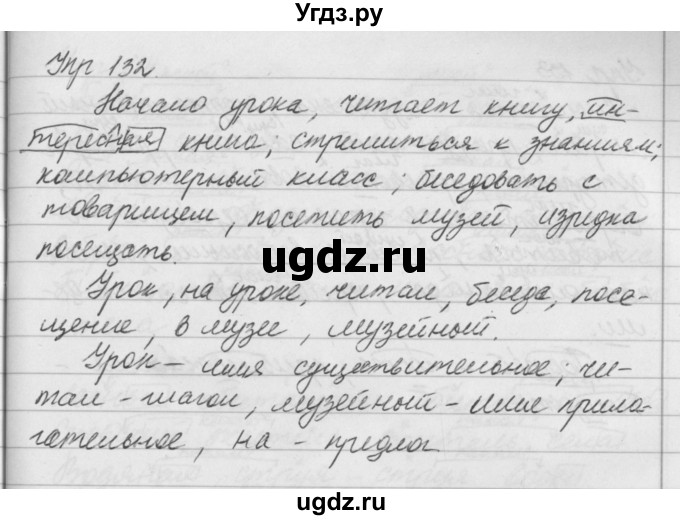 Угдз.ру
Упр 132.
Начало урока, читает книгу, ин-
тересная книга; стремиться к знаниям;
компьютерный класс; беседовать с
товарищем, посетить музей, изредка
посещать.
ugdz.ru
Урок, на уроке, читал, беседа, посе-
щение, в музее, музейный.
Урок – имя существительное; чи-
тал – глагол, музейный – имя прила-
гательное, на – предлог
ugdz.ru